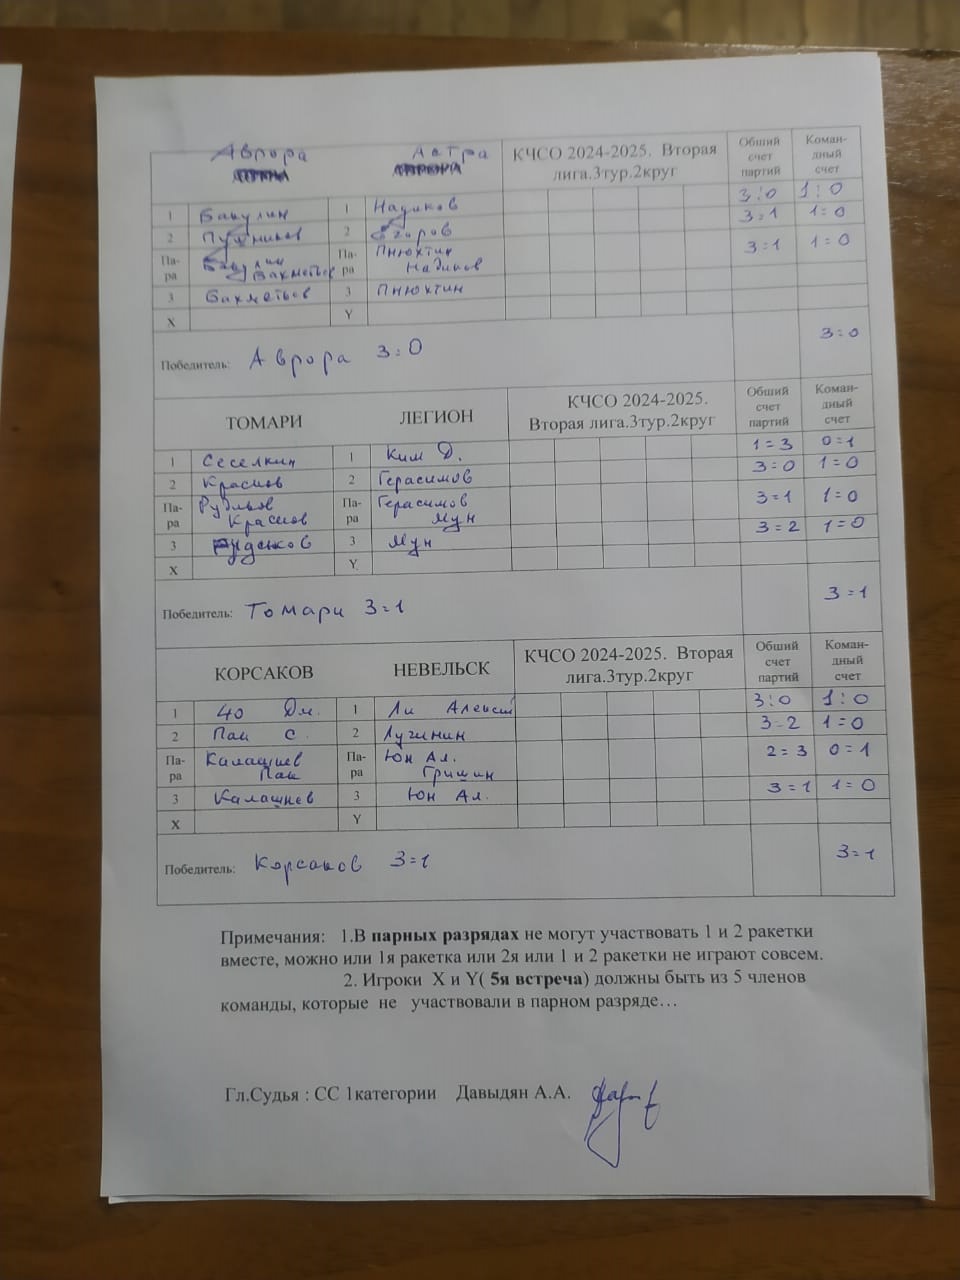 Аврора Астра КЧСО 2024-2025. Вторая лига.3тур.2круг Общий счет партий Коман-дный счет
3:0 1:0
1 Бакулин 1 Надиков 3=1 1=0
2 2 Егоров
Па-ра Бакулин Бахметьев Па-ра Пнюхтин Надиков 3=1 1=0
3 Бахметьев 3 Пнюхтин
X Y
Победитель: Аврора 3:0 3:0
ТОМАРИ ЛЕГИОН КЧСО 2024-2025. Вторая лига.3тур.2круг Общий счет партий Коман-дный счет
1=3 0=1
1 Сеселкин 1 Ким Д. 3=0 1=0
2 Краснов 2 Герасимов
Па-ра Краснов Па-ра Герасимов Мун 3=1 1=0
3 3 Мун 3=2 1=0
X Y
Победитель: Томари 3=1 3=1
КОРСАКОВ НЕВЕЛЬСК КЧСО 2024-2025. Вторая лига.3тур.2круг Общий счет партий Коман-дный счет
1 Чо Дм. 1 Ли Алексей 3:0 1:0
2 Пак С. 2 Лугинин 3-2 1=0
Па-ра Калашнев Пак Па-ра Юн Ал. Гришин 2=3 0=1
3 Калашнев 3 Юн Ал. 3=1 1=0
X Y
Победитель: Корсаков 3=1 3=1
Примечания: 1.В парных разрядах не могут участвовать 1 и 2 ракетки
вместе, можно или 1я ракетка или 2я или 1 и 2 ракетки не играют совсем.
2. Игроки X и Y( 5я встреча) должны быть из 5 членов
команды, которые не участвовали в парном разряде…
Гл.Судья : СС 1категории Давыдян А.А.